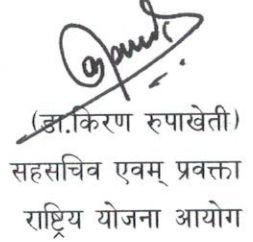 (डा.किरण रुपाखेती)
सहसचिव एवम् प्रवक्ता
राष्ट्रिय योजना आयोग